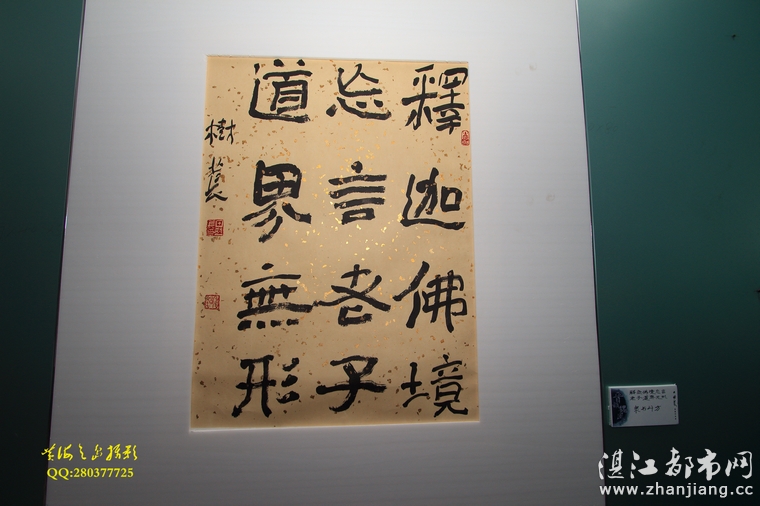 釋迦佛境
忘言老子
道界無形
樹
QQ:280377725
湛江都市网
www.zhanjiang.cc